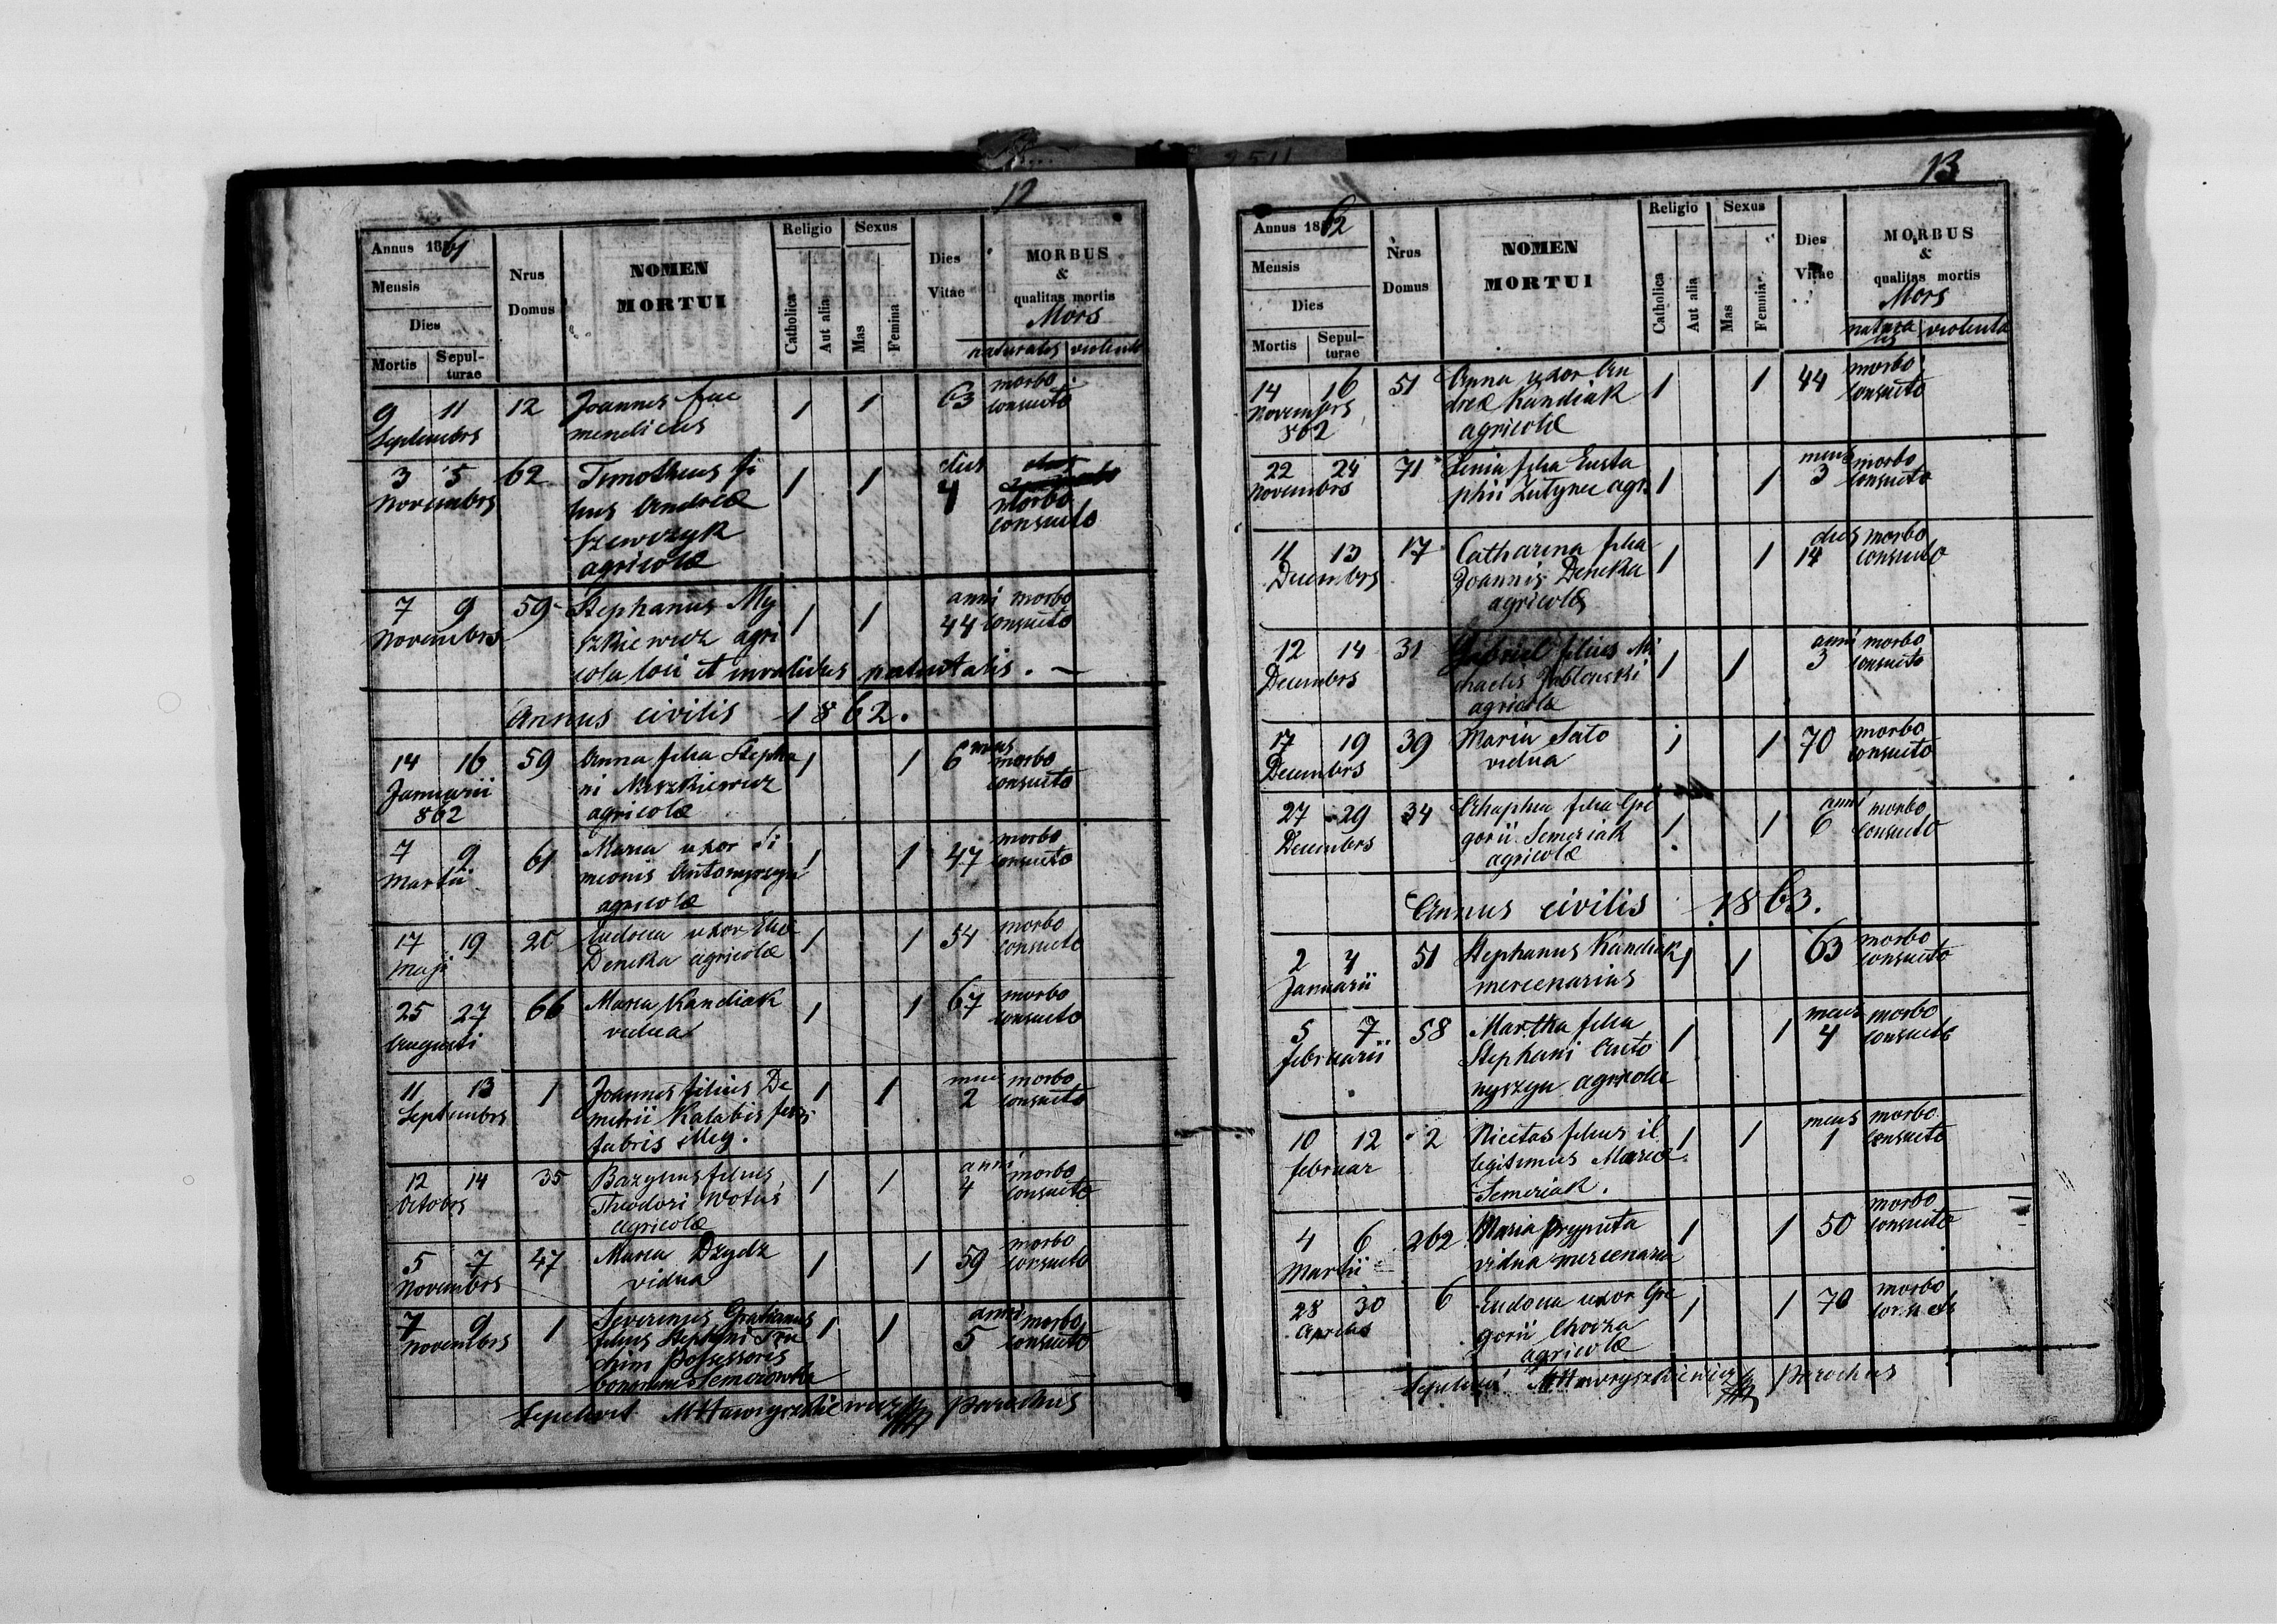 12
Annus 1861
Mensis
Dies
Mortis
Sepul-
turae
Nrus
Domus
NOMEN
MORTUI
Religio
Catholica
Aut alia
Sexus
Mas
Femina
Dies
Vitae
MORBUS
&
qualitas mortis
Mors
naturalis violenta
9 11 12 Joannes 1 1 63 morbo
Septembrs mendicus consueto
3 5 62 Timotheus fi 1 1 dies
Novembrs lius Andreæ 4 morbo
Szewczyk consueto
agricolæ
7 9 59 Stephanus My 1 1 anni morbo
Novembrs szkiewicz agri 44 consueto
cola loci et invalidus patentalis. —
Annus civilis 1862.
14 16 59 Anna filia Stepha 1 1 6 mens
Januarii ni Myszkiewicz morbo
862 agricolæ consueto
7 9 61 Maria uxor Si 1 1 47 morbo
Martii meonis Antonyszyn consueto
agricolæ
17 19 20 Eudocia uxor Eliæ 1 1 54 morbo
Maji Deneka agricolæ consueto
25 27 66 Maria Kandiak 1 1 67 morbo
Augusti vidua consueto
11 13 1 Joannes filius De 1 1 mens morbo
Septembrs metrii Kalabis ferri 2 consueto
fabris
12 14 35 Bazylius filius 1 1 anni morbo
Octobrs Theodori Wotus 4 consueto
agricolæ
5 7 47 Maria Dzydz 1 1 59 morbo
Novembrs vidua consueto
7 9 1 Severinus Gratianus 1 1 anni morbo
Novembrs filius Stephani 5 consueto
possessoris
bonorum Hemerowka
Sepelivit MHawryszkiewicz Parochus
13
Annus 1862
Mensis
Dies
Mortis
Sepul-
turae
Nrus
Domus
NOMEN
MORTUI
Religio
Catholica
Aut alia
Sexus
Mas
Femina
Dies
Vitae
MORBUS
&
qualitas mortis
Mors
natura violenta
lis
14 16 51 Anna uxor An 1 1 44 morbo
Novembrs dreæ Kandiak consueto
862 agricolæ
22 24 71 Xenia filia Eusta 1 1 mens morbo
Novembrs phii agr. 3 consueto
11 13 17 Catharina filia 1 1 dies morbo
Decembrs Joannis Deneka 14 consueto
agricolæ
12 14 31 Gabriel filius Mi 1 1 anni morbo
Decembrs chaelis Jablonski 3 consueto
agricolæ
17 19 39 Maria Sato 1 1 70 morbo
Decembrs vidua consueto
27 29 34 Ahaphia filia Gre 1 1 anni morbo
Decembrs gorii Semeriak 6 consueto
agricolæ
Annus civilis 1863.
2 4 51 Stephanus Kandiak 1 1 63 morbo
Januarii mercenarius consueto
5 7 58 Martha filia 1 1 mens morbo
februarii Stephani Anto 4 consueto
nyszyn agricolæ
10 12 2 Nicetas filius il 1 1 mens morbo
februar legitimus Mariæ 1 consueto
Semeriak.
4 6 262 Maria Pryputa 1 1 50 morbo
Martii vidua mercenaria consueto
28 30 6 Eudocia uxor Gre 1 1 70 morbo
Aprilis gorii consueto
agricolæ
Sepelivi MHawryszkiewicz Parochus